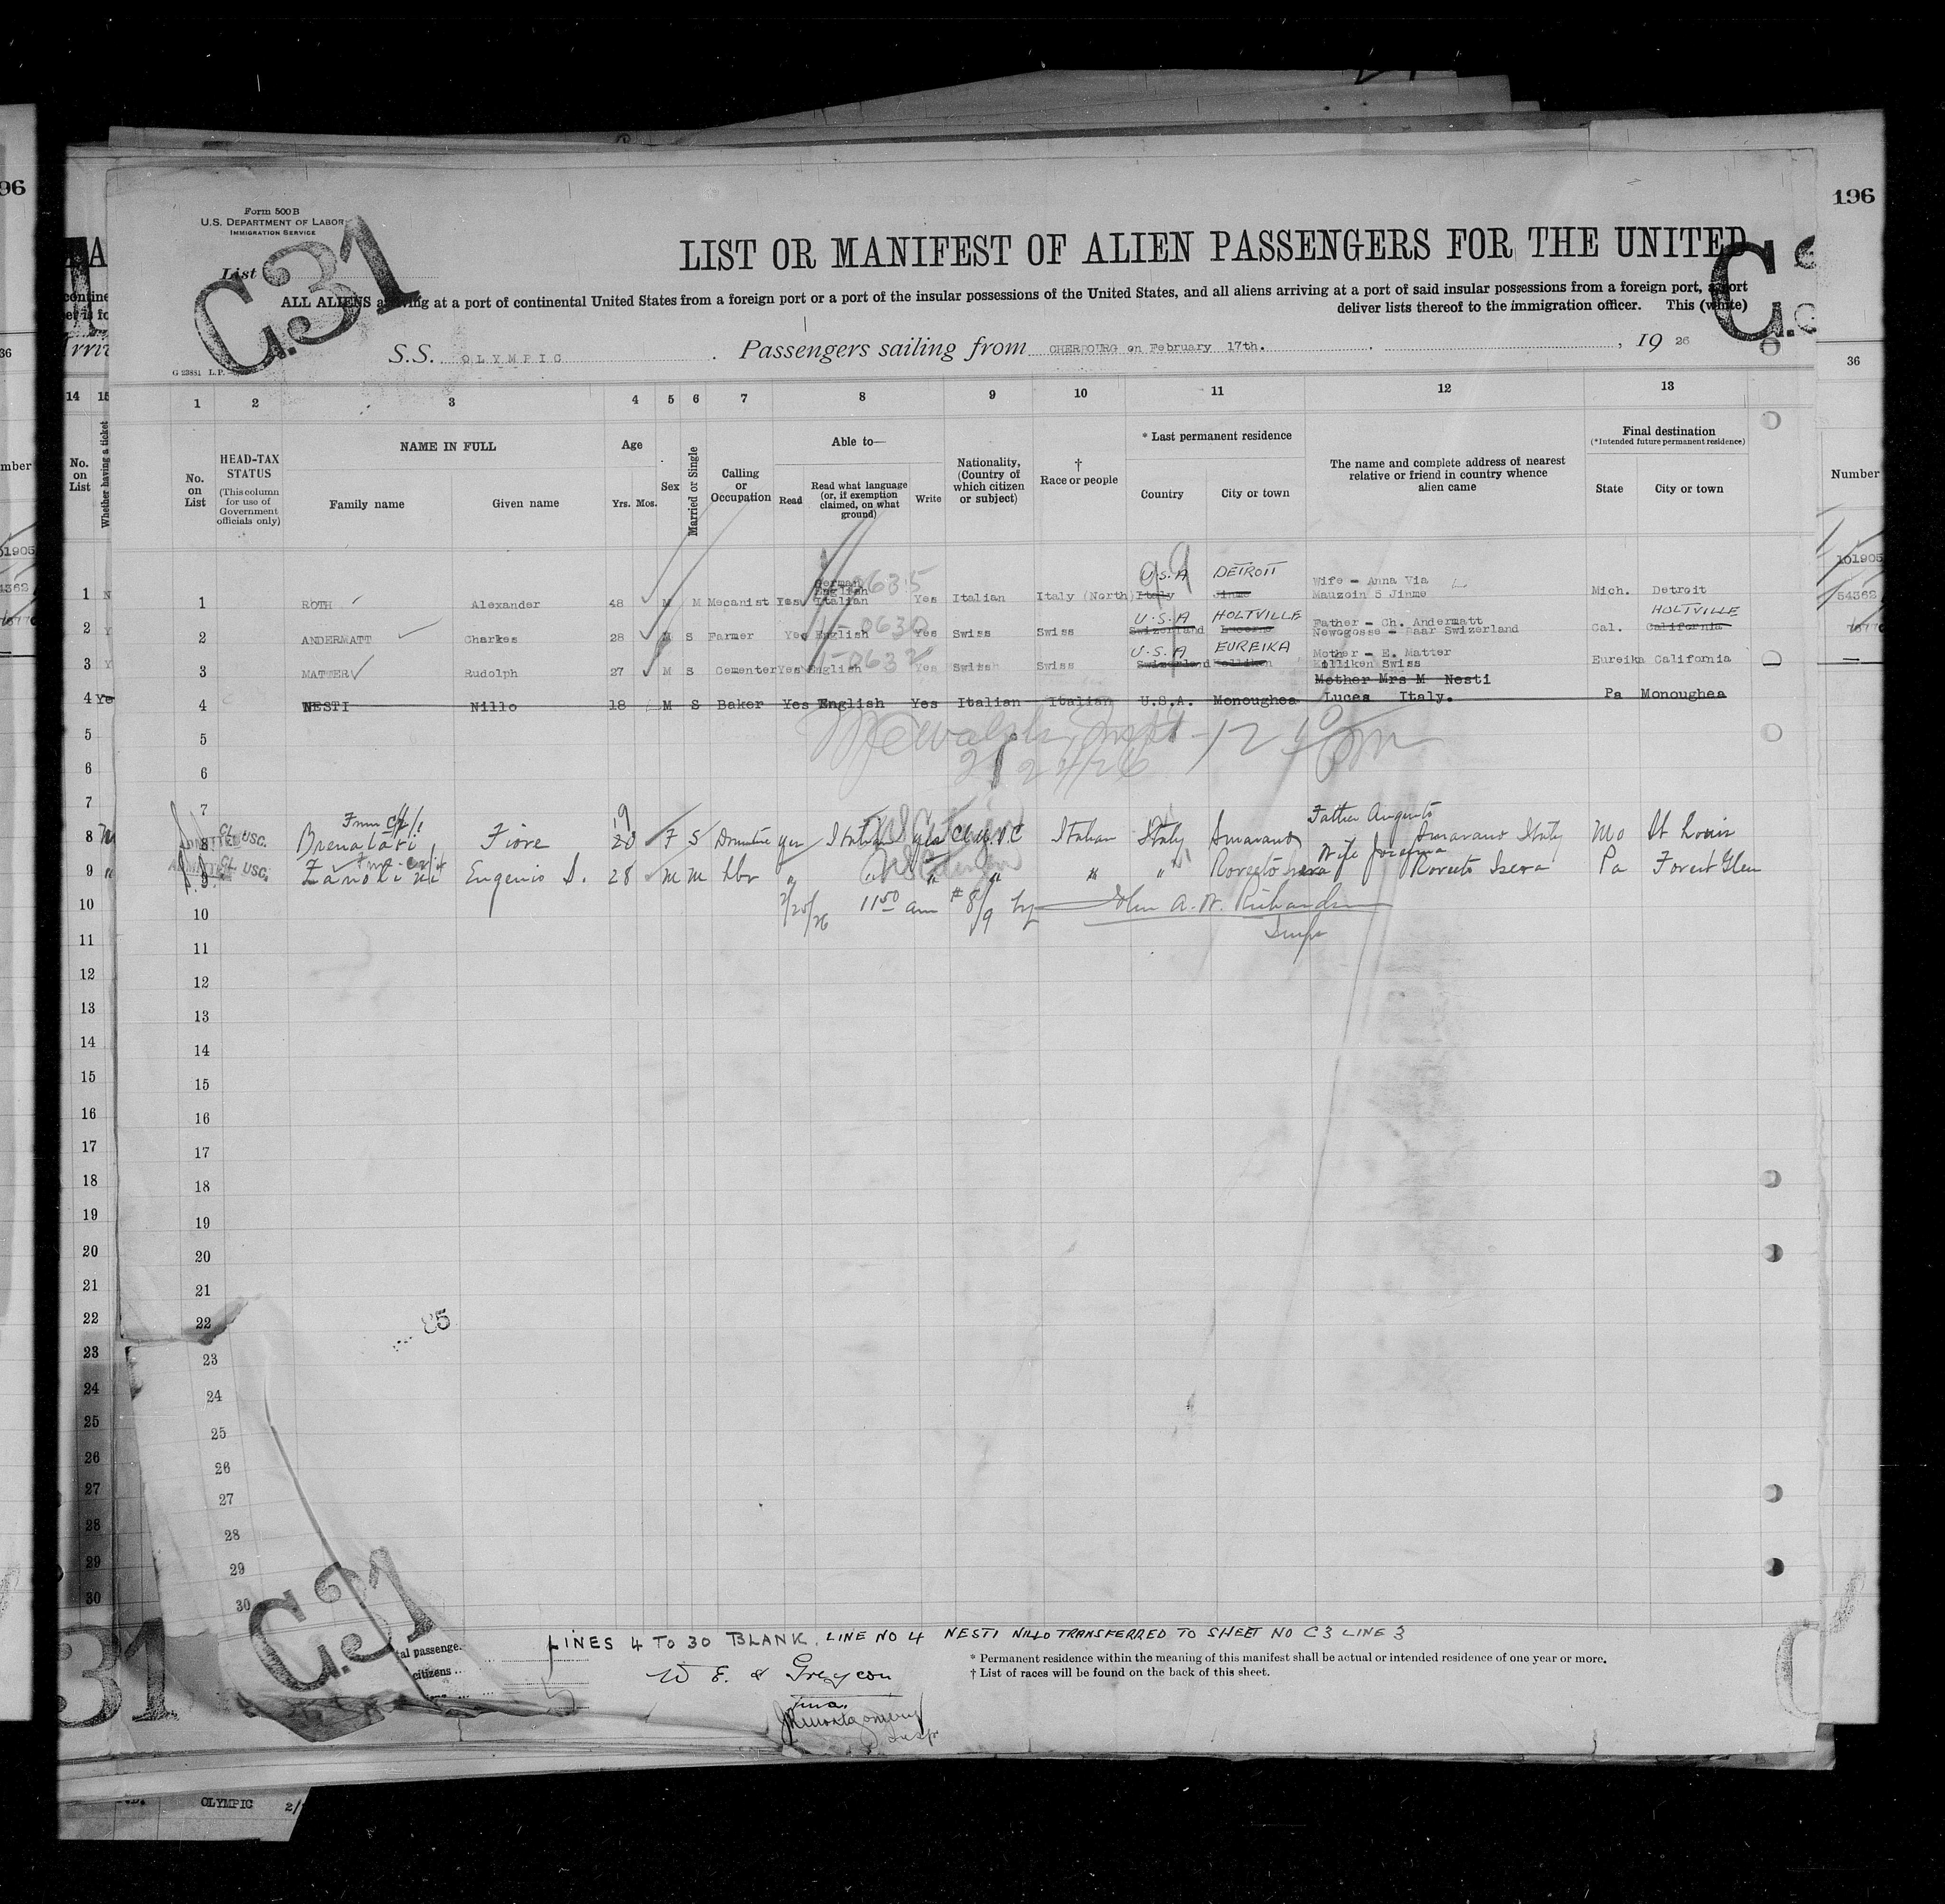 96
196
Form 500 B
U.S. DEPARTMENT OF LABOR
IMMIGRATION SERVICE
C.31
List
LIST OR MANIFEST OF ALIEN PASSENGERS FOR THE UNITED
ALL ALIENS arriving at a port of continental United States from a foreign port or a port of the insular possessions of the United States, and all aliens arriving at a port of said insular possessions from a foreign port, a port
deliver lists thereof to the immigration officer. This (white)
S.S. OLYMPIC. Passengers sailing from CHERBOURG on February 17th., 1926
G 23881 L.P.
36
14 15
1 2 3 4 5 6 7 8 9 10 11 12 13
No. on List
Whether having a ticket
Number
No. on List
HEAD-TAX STATUS
(This column for use of Government officials only)
NAME IN FULL
Family name
Given name
Age
Yrs. Mos.
Sex
Married or Single
Calling or Occupation
Able to—
Read
Read what language (or, if exemption claimed, on what ground)
Write
Nationality, (Country of which citizen or subject)
† Race or people
* Last permanent residence
Country
City or town
The name and complete address of nearest relative or friend in country whence alien came
Final destination
(*Intended future permanent residence)
State
City or town
101905
54362
U.S.A DETROIT
1 ROTH Alexander 48 M M Mecanist Yes German English Italian Yes Italian Italy (North) Italy Jinme Wife - Anna Via Mauzoin 5 Jinme Mich. Detroit
U.S.A HOLTVILLE HOLTVILLE
2 ANDERMATT Charkes 28 M S Farmer Yes English Yes Swiss Swiss Swizerland Lucerne Father - Ch. Andermatt Newogosse - Baar Swizerland Cal. California
U.S.A EUREIKA
3 MATTER Rudolph 27 M S Cementer Yes English Yes Swiss Swiss Swizerland Kolliken Mother - E. Matter Kolliken Swiss Eureika California
4 NESTI Nillo 18 M S Baker Yes English Yes Italian Italian U.S.A. Monoughea Mother Mrs M Nesti Lucca Italy. Pa Monoughea
5
6
2/24/26
7
8 Fiore 19 20 F S Italian Italian Italy Father Augusto Italy Mo St Louis
ADMITTED USC.
9 Eugenio S. 28 M M Lbr " " " " Roveeto Wife Pa Forest Glen
10 2/25/26 11 50 am # 8/9 by John A. W. Richardson
Insp
11
12
13
14
15
16
17
18
19
20
21
22
85
23
24
25
26
27
28
29
30
C.31
LINES 4 TO 30 BLANK. LINE NO 4 NESTI NILLO TRANSFERRED TO SHEET NO C3 LINE 3
* Permanent residence within the meaning of this manifest shall be actual or intended residence of one year or more.
† List of races will be found on the back of this sheet.
al passenge
citizens
31
OLYMPIC 2/